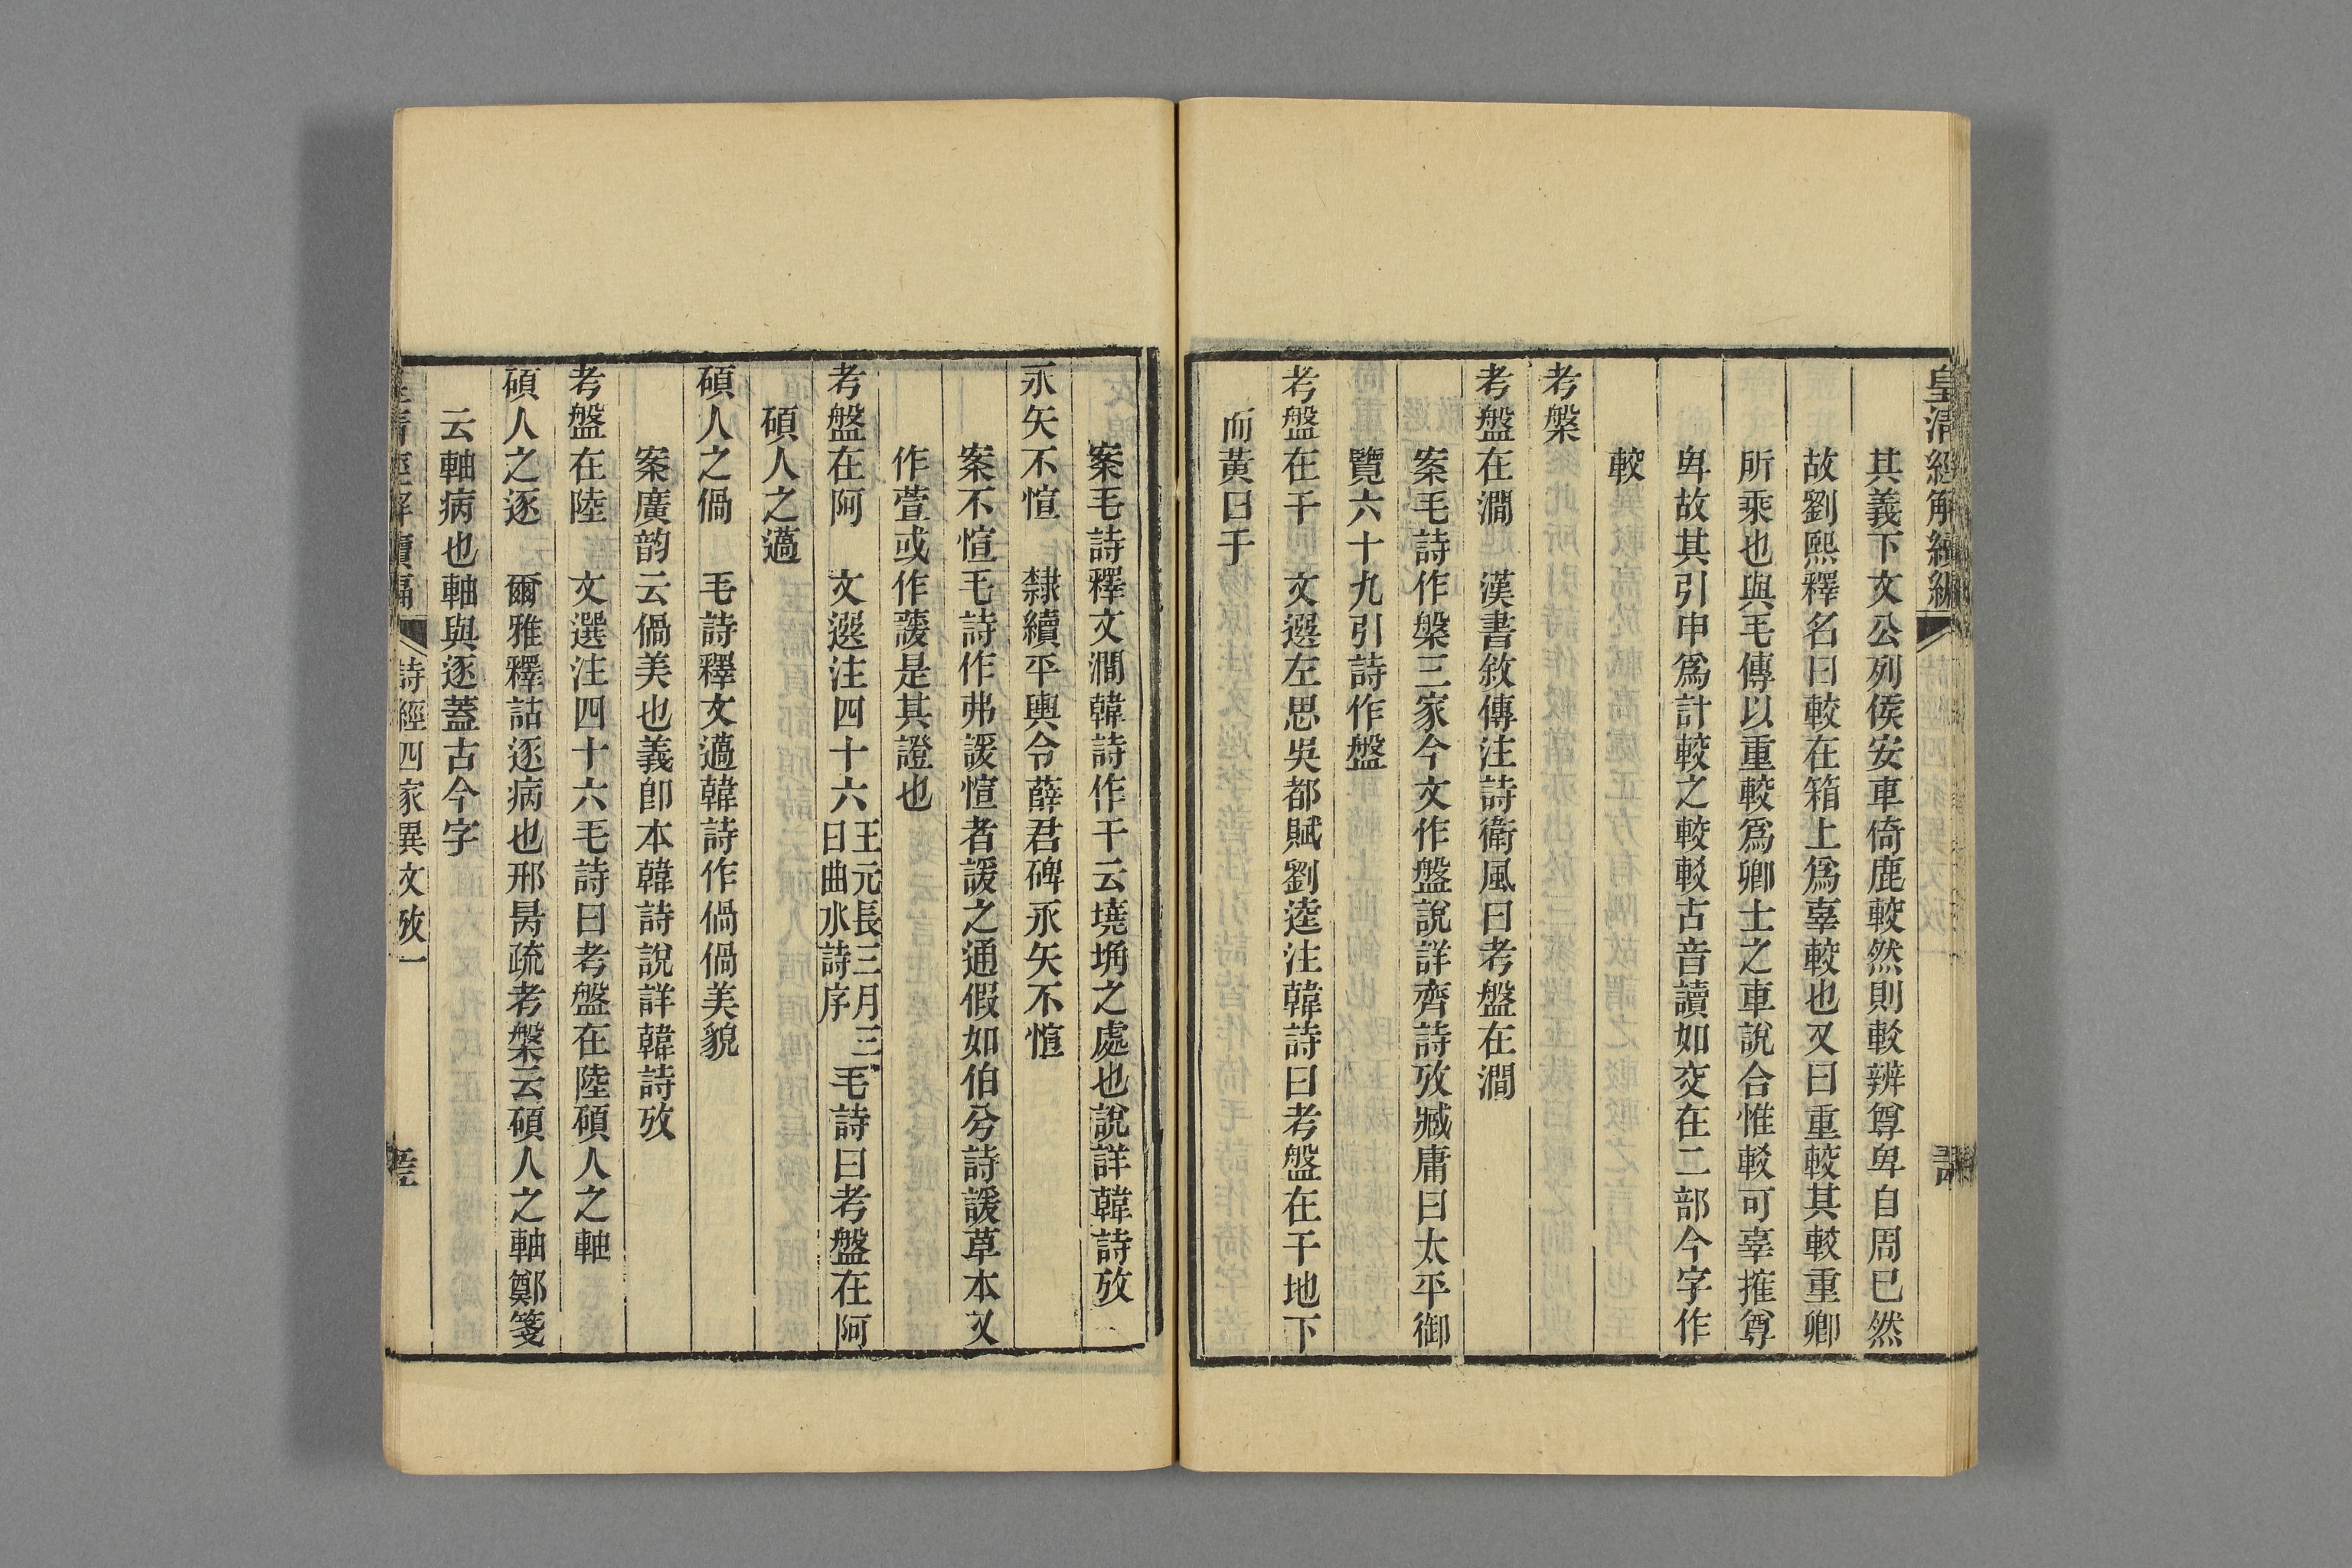 皇清經解續編
其義下文公列侯安車倚鹿較然則較辨尊卑自周已然
故劉熙釋名曰較在箱上爲辜較也又曰重較其較重卿
所乘也與毛傳以重較爲卿士之車說合惟較可辜搉尊
卑故其引申爲計較之較較古音讀如交在二部今字作
較
考槃
考盤在澗　漢書敘傳注詩衛風曰考盤在澗
案毛詩作槃三家今文作盤說詳齊詩攷臧庸曰太平御
覽六十九引詩作盤
考盤在干　文選左思吳都賦劉逵注韓詩曰考盤在干地下
而黃曰干
案毛詩釋文澗韓詩作干云墝埆之處也說詳韓詩攷
永矢不愃　隸續平輿令薛君碑永矢不愃
案不愃毛詩作弗諼愃者諼之通假如伯兮詩諼草本又
作萱或作蘐是其證也
考盤在阿　文選注四十六王元長三月三日曲水詩序毛詩曰考盤在阿
碩人之薖
碩人之㗻　毛詩釋文薖韓詩作㗻㗻美貌
案廣韵云㗻美也義卽本韓詩說詳韓詩攷
考盤在陸　文選注四十六毛詩曰考盤在陸碩人之軸
碩人之逐　爾雅釋詁逐病也邢昺疏考槃云碩人之軸鄭箋
云軸病也軸與逐蓋古今字
詩經四家異文攷一